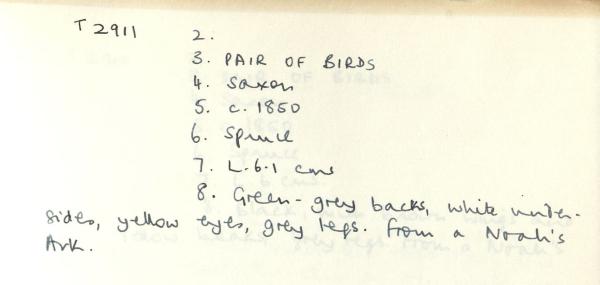 T 2911 2.
3. PAIR OF BIRDS
4. Saxon
5. c. 1850
6. Spruce
7. L. 6.1 cms
8. Green-grey backs, white under-
sides, yellow eyes, grey legs. From a Noah's
Ark.